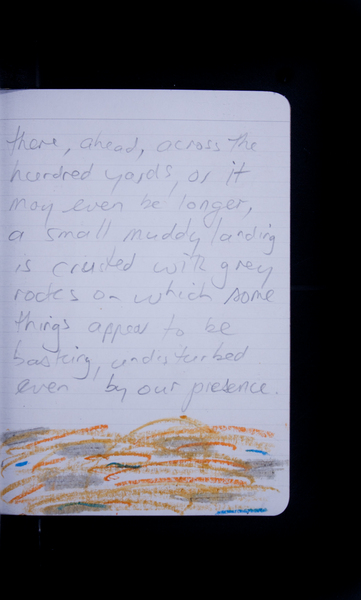 there, ahead, across the
hundred yards, or it
may even be longer,
a small muddy landing
is cruded with grey
rocks on which some
things appear to be
basking, undisturbed
even by our presence.